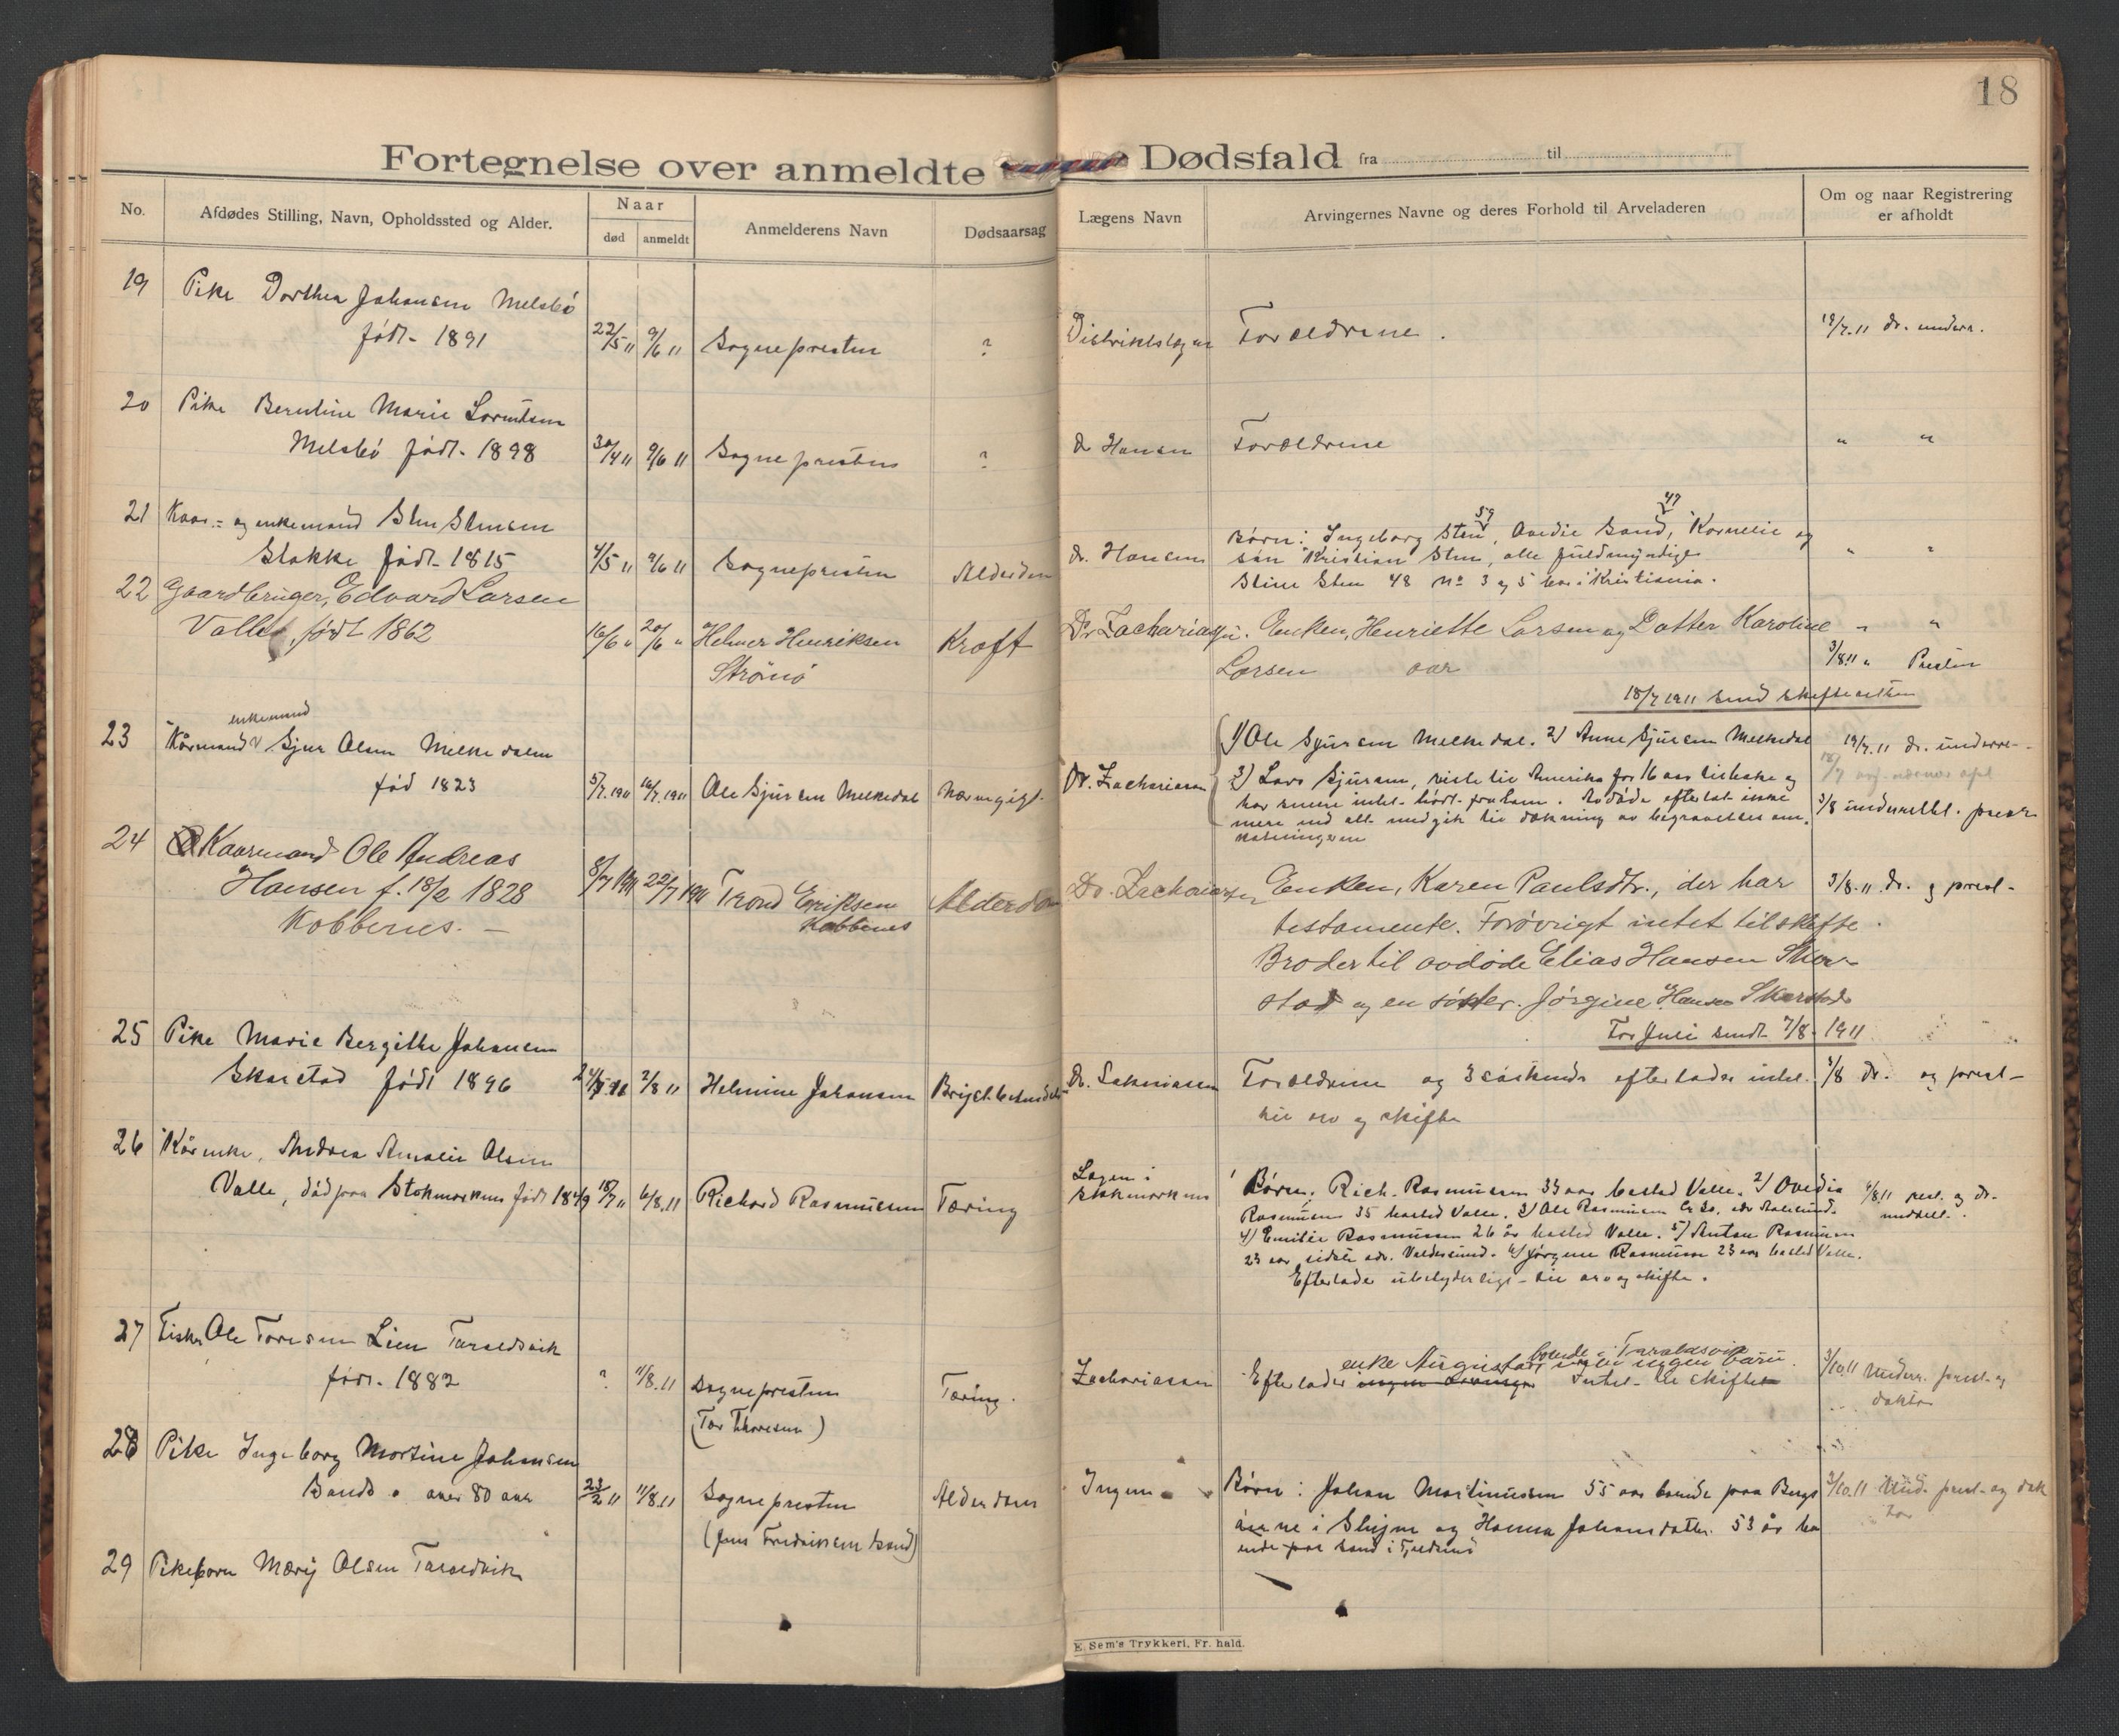 18
Fortegnelse over anmeldte Dødsfald fra til
No.
Afdødes Stilling, Navn, Opholdssted og Alder.
Naar
død anmeldt
Anmelderens Navn
Dødsaarsag
Lægens Navn
Arvingernes Navne og deres Forhold til Arveladeren
Om og naar Registrering
er afholdt
19 Pike Dorthea Johansen Melsbö
født 1891 22/5 11 9/6 11 Sognepresten ? Distriktslægen Forældrene. 19/7.11 dr. underr.
20 Pike Berntine Marie Lorentsen
Melsbö født 1898 30/4 11 9/6 11 Sognepresten ? dr Hansen Forældrene " "
21 Kaar- og enkemand Sten Stensen
Stokke født 1815 4/5 11 9/6 11 Sognepresten Alderdom dr. Hansen
Børn: Ingeborg Sten 59, Ovedie Sand 47, Kornelie og
søn Kristian Sten, alle fuldmyndige
Stine Sten 48 No 3 og 5 bor i Kristiania. " "
22 Gaardbruger, Edvard Larsen
Valle, født 1862 16/6 " 20/6 " Helmer Henriksen Kræft Dr Zachariassen. Enken, Henriette Larsen og Datter Karoline " "
Strönö Larsen aar 3/8.11 " Presten
18/7 1911 send skifteretten
23 Kårmand enkemand Sjur Olsen Melkedalen
fød 1823 5/7.1911 16/7.1911 Ole Sjursen Melkedal Dr. Zachariassen
1) Ole Sjursen Melkedal. 2) Anne Sjursen Melkedal 19/7.11 dr. underr.
3) Lars Sjursen, reiste til Amerika for 16 aar tilbake og
har senere intet hørt fra ham. Avdøde efterlot ikke 3/8 underrettet prest
mere end alt medgik til dækning av begravelses om-
kostningerne
24 Kaarmand Ole Andreas
Hansen f. 18/2 1828 8/7 1911 22/7 1911 Trond Eriksen Alderdom Dr. Zachariassen Enken, Karen Paulsdtr., der har 3/8.11 dr. og prest
Kobbenes. - Kobbenes testamente. Forøvrigt intet til skifte.
Broder til avdøde Elias Hansen Skar-
stad og en söster. Jörgine Hansen Skarstad
For Juli sendt 7/8 1911
25 Pike Marie Bergitte Johansen
Skarstad født 1896 2/8 11 Helmine Johansen Dr. Sakariassen Forældrene og 3 søskende efterlader intet 3/8 dr. og prest
til arv og skifte
26 Kårenke, Andrea Amalie Olsen
Valle, död paa Stokmarknes født 1849 18/7 11 6/8.11 Richard Rasmussen Tæring Lægen i
Stokmarknes
1 Børn: Rich. Rasmussen 33 aar bosted Valle. 2) Ovedia 6/8.11 prest. og dr.
Rasmussen 35 bosted Valle. 3) Ole Rasmussen meddelt.
4) Emilie Rasmussen 26 år bosted Valle. 5) Anton Rasmussen
23 aar, sidste adr. Valdersund. 6) Jörgine Rasmussen 23 aar bosted Valle.
Efterlader ubetydelig til arv og skifte.
27 Fisker Ole Toresen Lien Taraldsvik
født. 1882 ? 11/8.11 Sognepresten Tæring. Zachariassen
(Tor Thoresen)
boende i Taraldsvik
enke Augusta ingen børn.
Efterlader ingen arvinger Intet til skifte 3/10.11 Underr. prest og
doktor
28 Pike Ingeborg Martine Johansen
Sand. over 80 aar 23/2 11 11/8.11 Sognepresten Alderdom Ingen
(Jens Fredriksen Sand)
Børn: Johan Martinussen 55 aar boende paa Bergs 3/10.11 Und. prest og dok
i og Hanna Johansdatter. 53 år bo tor
ende paa Sand i Tjeldsund
29 Pikebarn Mary Olsen Taraldvik
E. Sem's Trykkeri, Fr. hald.